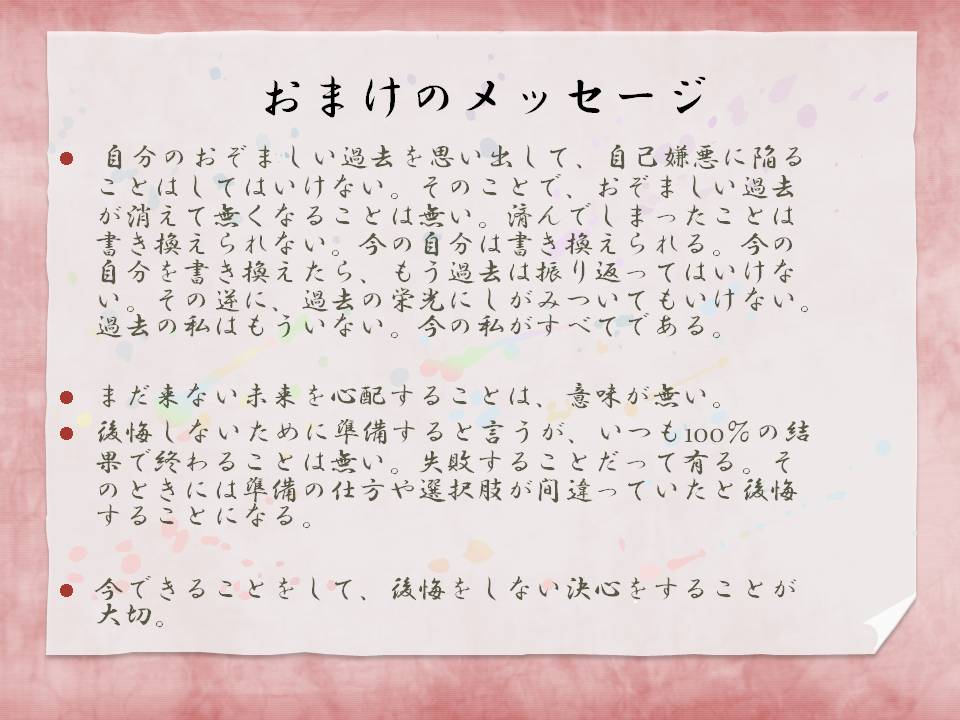 おまけのメッセージ
● 自分のおぞましい過去を思い出して、自己嫌悪に陥る
ことはしてはいけない。そのことで、おぞましい過去
が消えて無くなることは無い。済んでしまったことは
書き換えられない。今の自分は書き換えられる。今の
自分を書き換えたら、もう過去は振り返ってはいけな
い。その逆に、過去の栄光にしがみついてもいけない。
過去の私はもういない。今の私がすべてである。
● まだ来ない未来を心配することは、意味が無い。
● 後悔しないために準備すると言うが、いつも100％の結
果で終わることは無い。失敗することだって有る。そ
のときには準備の仕方や選択肢が間違っていたと後悔
することになる。
● 今できることをして、後悔をしない決心をすることが
大切。